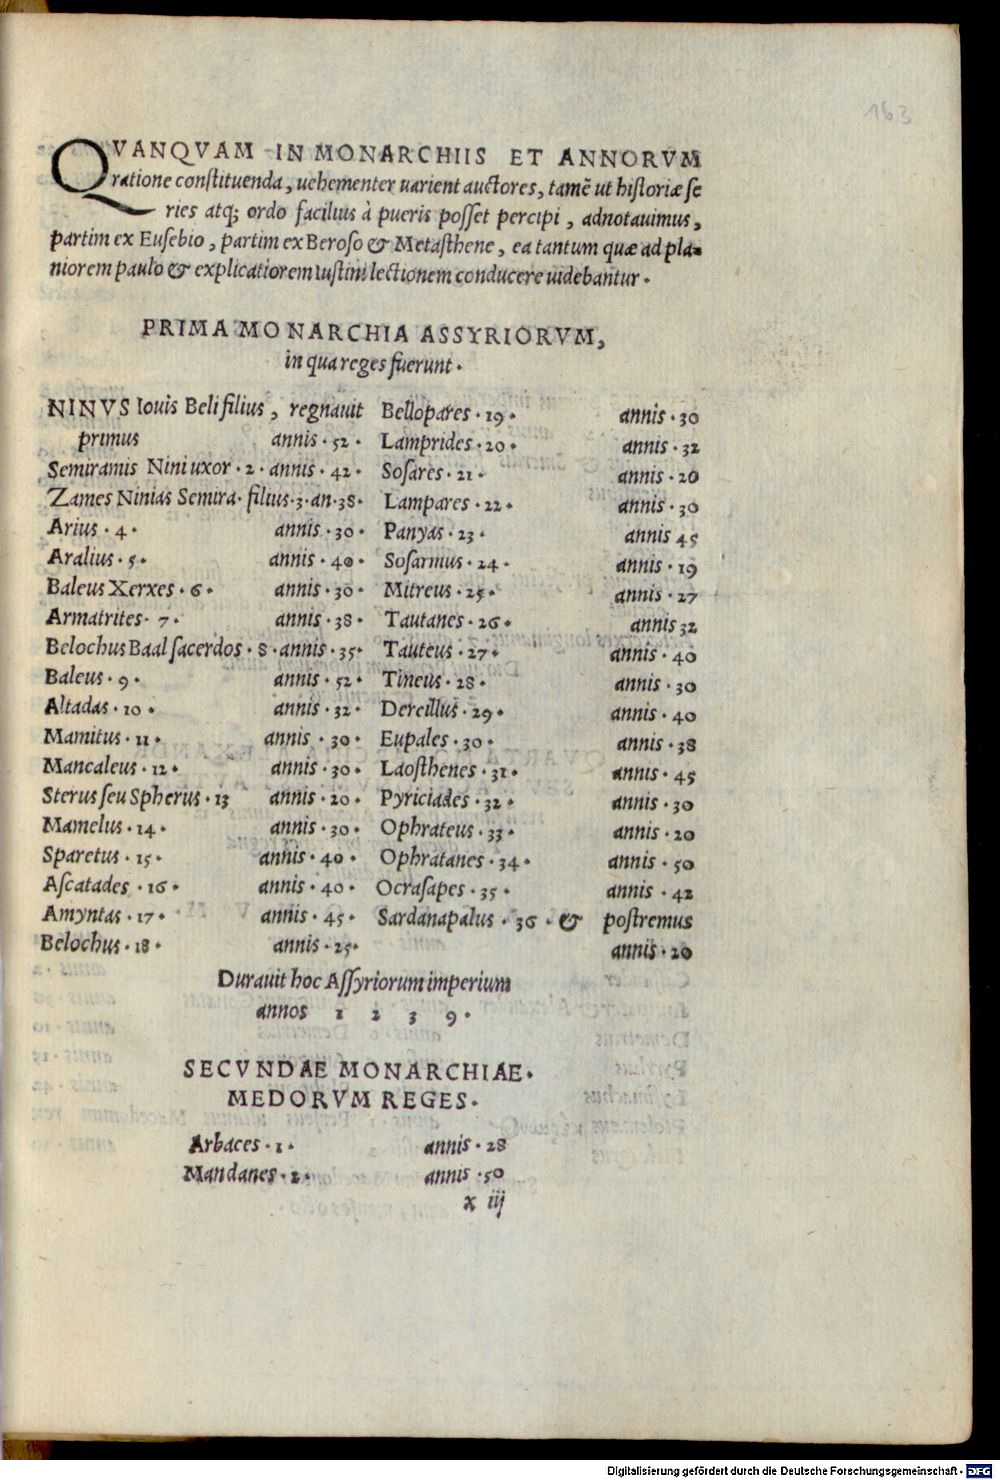 163
QVANQVAM IN MONARCHIIS ET ANNORVM
ratione constituenda, uehementer uarient auctores, tamē ut historiæ se
ries atq; ordo facilius à pueris posset percipi, adnotauimus,
partim ex Eusebio, partim ex Beroso & Metasthene, ea tantum quæ ad pla=
niorem paulo & explicatiorem Iustini lectionem conducere uidebantur.
PRIMA MONARCHIA ASSYRIORVM,
in qua reges fuerunt.
NINVS Iouis Beli filius, regnauit
primus annis. 52.
Semiramis Nini uxor. 2. annis. 42.
Zames Ninias Semira. filius. 3. an. 38.
Arius. 4. annis. 30.
Aralius. 5. annis. 40.
Baleus Xerxes. 6. annis. 30.
Armatrites. 7. annis. 38.
Belochus Baal sacerdos. 8. annis. 35.
Baleus. 9. annis. 52.
Altadas. 10. annis. 32.
Mamitus. 11. annis. 30.
Mancaleus. 12. annis. 30.
Sterus seu Spherus. 13 annis. 20.
Mamelus. 14. annis. 30.
Sparetus. 15. annis. 40.
Ascatades. 16. annis. 40.
Amyntas. 17. annis. 45.
Belochus. 18. annis. 25.
Bellopares. 19. annis. 30
Lamprides. 20. annis. 32
Sosares. 21. annis. 20
Lampares. 22. annis. 30
Panyas. 23. annis 45
Sosarmus. 24. annis. 19
Mitreus. 25. annis. 27
Tautanes. 26. annis 32
Tauteus. 27. annis. 40
Tineus. 28. annis. 30
Dercillus. 29. annis. 40
Eupales. 30. annis. 38
Laosthenes. 31. annis. 45
Pyriciades. 32. annis. 30
Ophrateus. 33. annis. 20
Ophratanes. 34. annis. 50
Ocrasapes. 35. annis. 42
Sardanapalus. 36. & postremus
annis. 20
Durauit hoc Assyriorum imperium
annos 1 2 3 9.
SECVNDAE MONARCHIAE.
MEDORVM REGES.
Arbaces. 1. annis. 28
Mandanes. 2. annis. 50
x iij
Digitalisierung gefördert durch die Deutsche Forschungsgemeinschaft - DFG